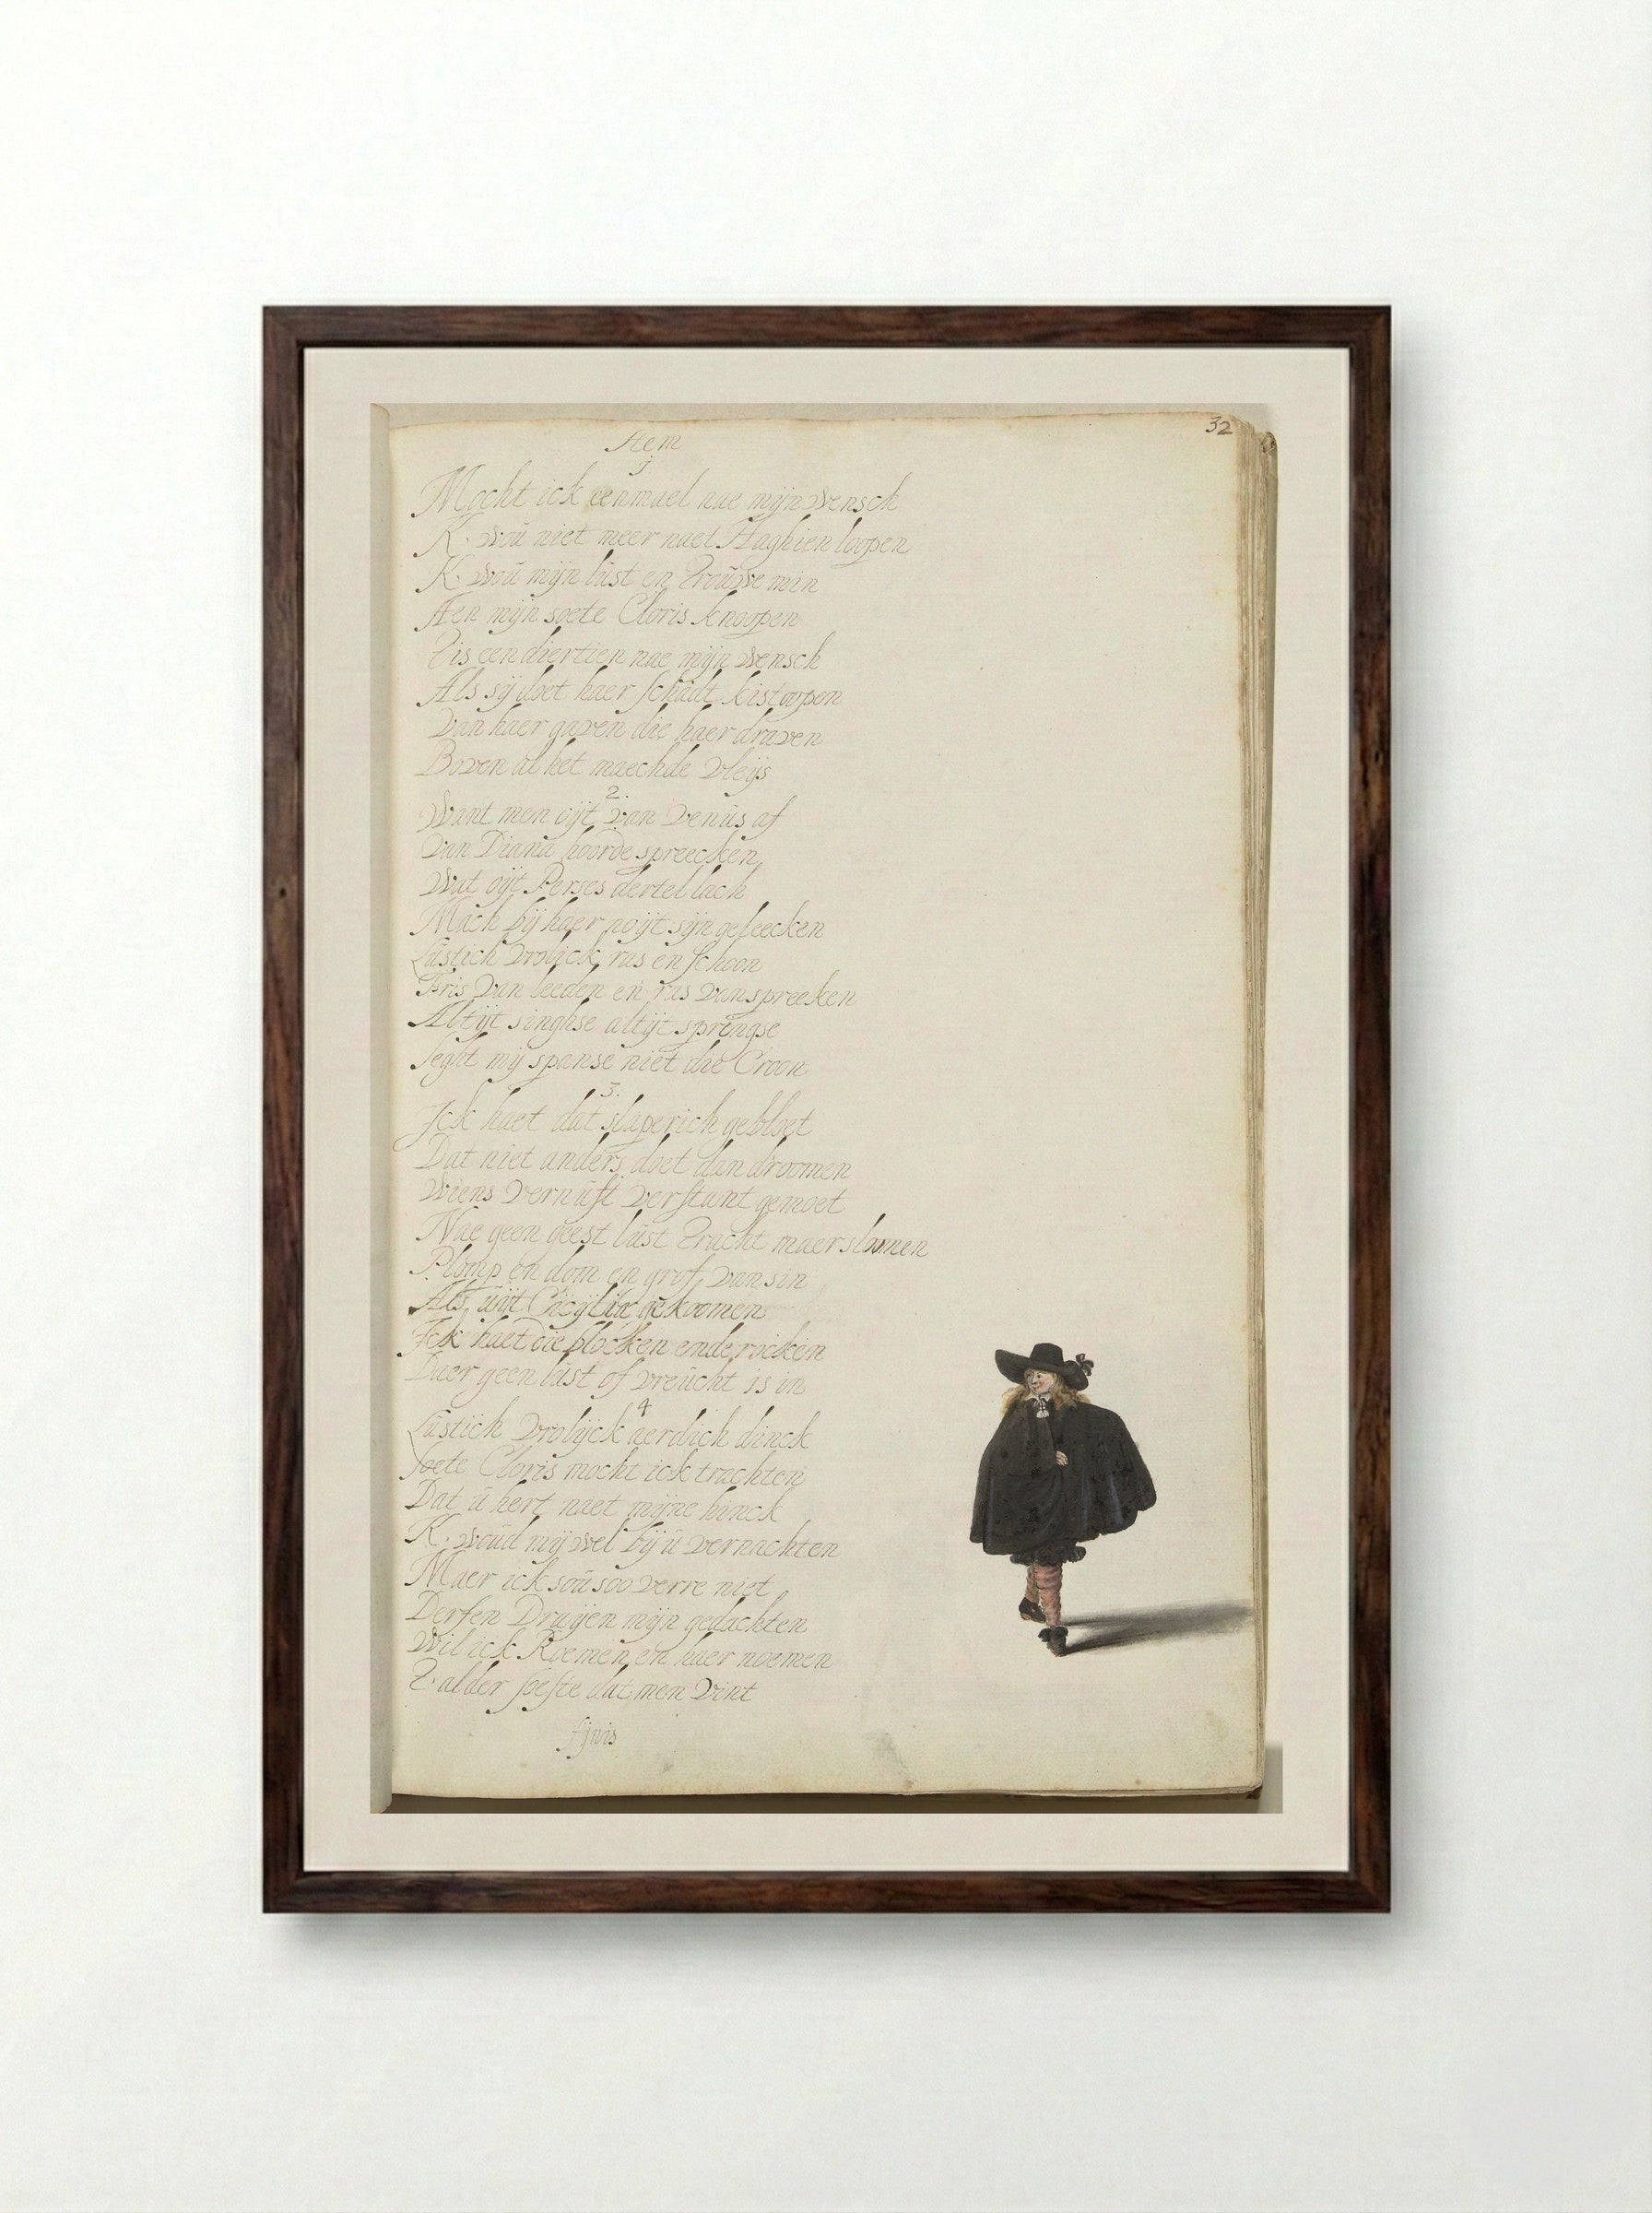 32
Stem
j
Mocht ick eenmael nae mijn wensch
K. woū niet meer naet Haghien loopen
K. woū mijn lūst en troūwe min
Aen mijn soete Cloris knoopen
Tis een diertien nae mijn wensch
Als sij doet haer schadt kist oopen
Van haer gaven die haer draven
Boven al het maechde vleijs
2.
Want men oijt van Venūs af
Van Diana hoorde spreecken
Wat oijt Perses dertel lach
Mach bij haer noijt sijn geleecken
Lūstich vrolick ras en schoon
Fris van leeden en ras van spreeken
Altijt singhse altijt sprengse
Seght mij spanse niet die Croon
3.
Jck haet dat slaperich gebloet
Dat niet anders doet dan droomen
Wiens vernūft verstant gemoet
Nae geen geest lūst tracht maer sloomen
Plomp en dom en grof van sin
Als ūijt gekoomen
Jck haet die blocken ende rocken
Daer geen lūst of vreūcht is in
4
Lūstich vrolijck aerdich dinck
Soete Cloris mocht ick trachten
Dat ū hert naet mijne hinck
K. woūd mij wel bij ū vernachten
Maer ick soū soo verre niet
Derfen Draijen mijn gedachten
Wil ick Roemen en haer noemen
T. alder soeste dat men vint
fijnis